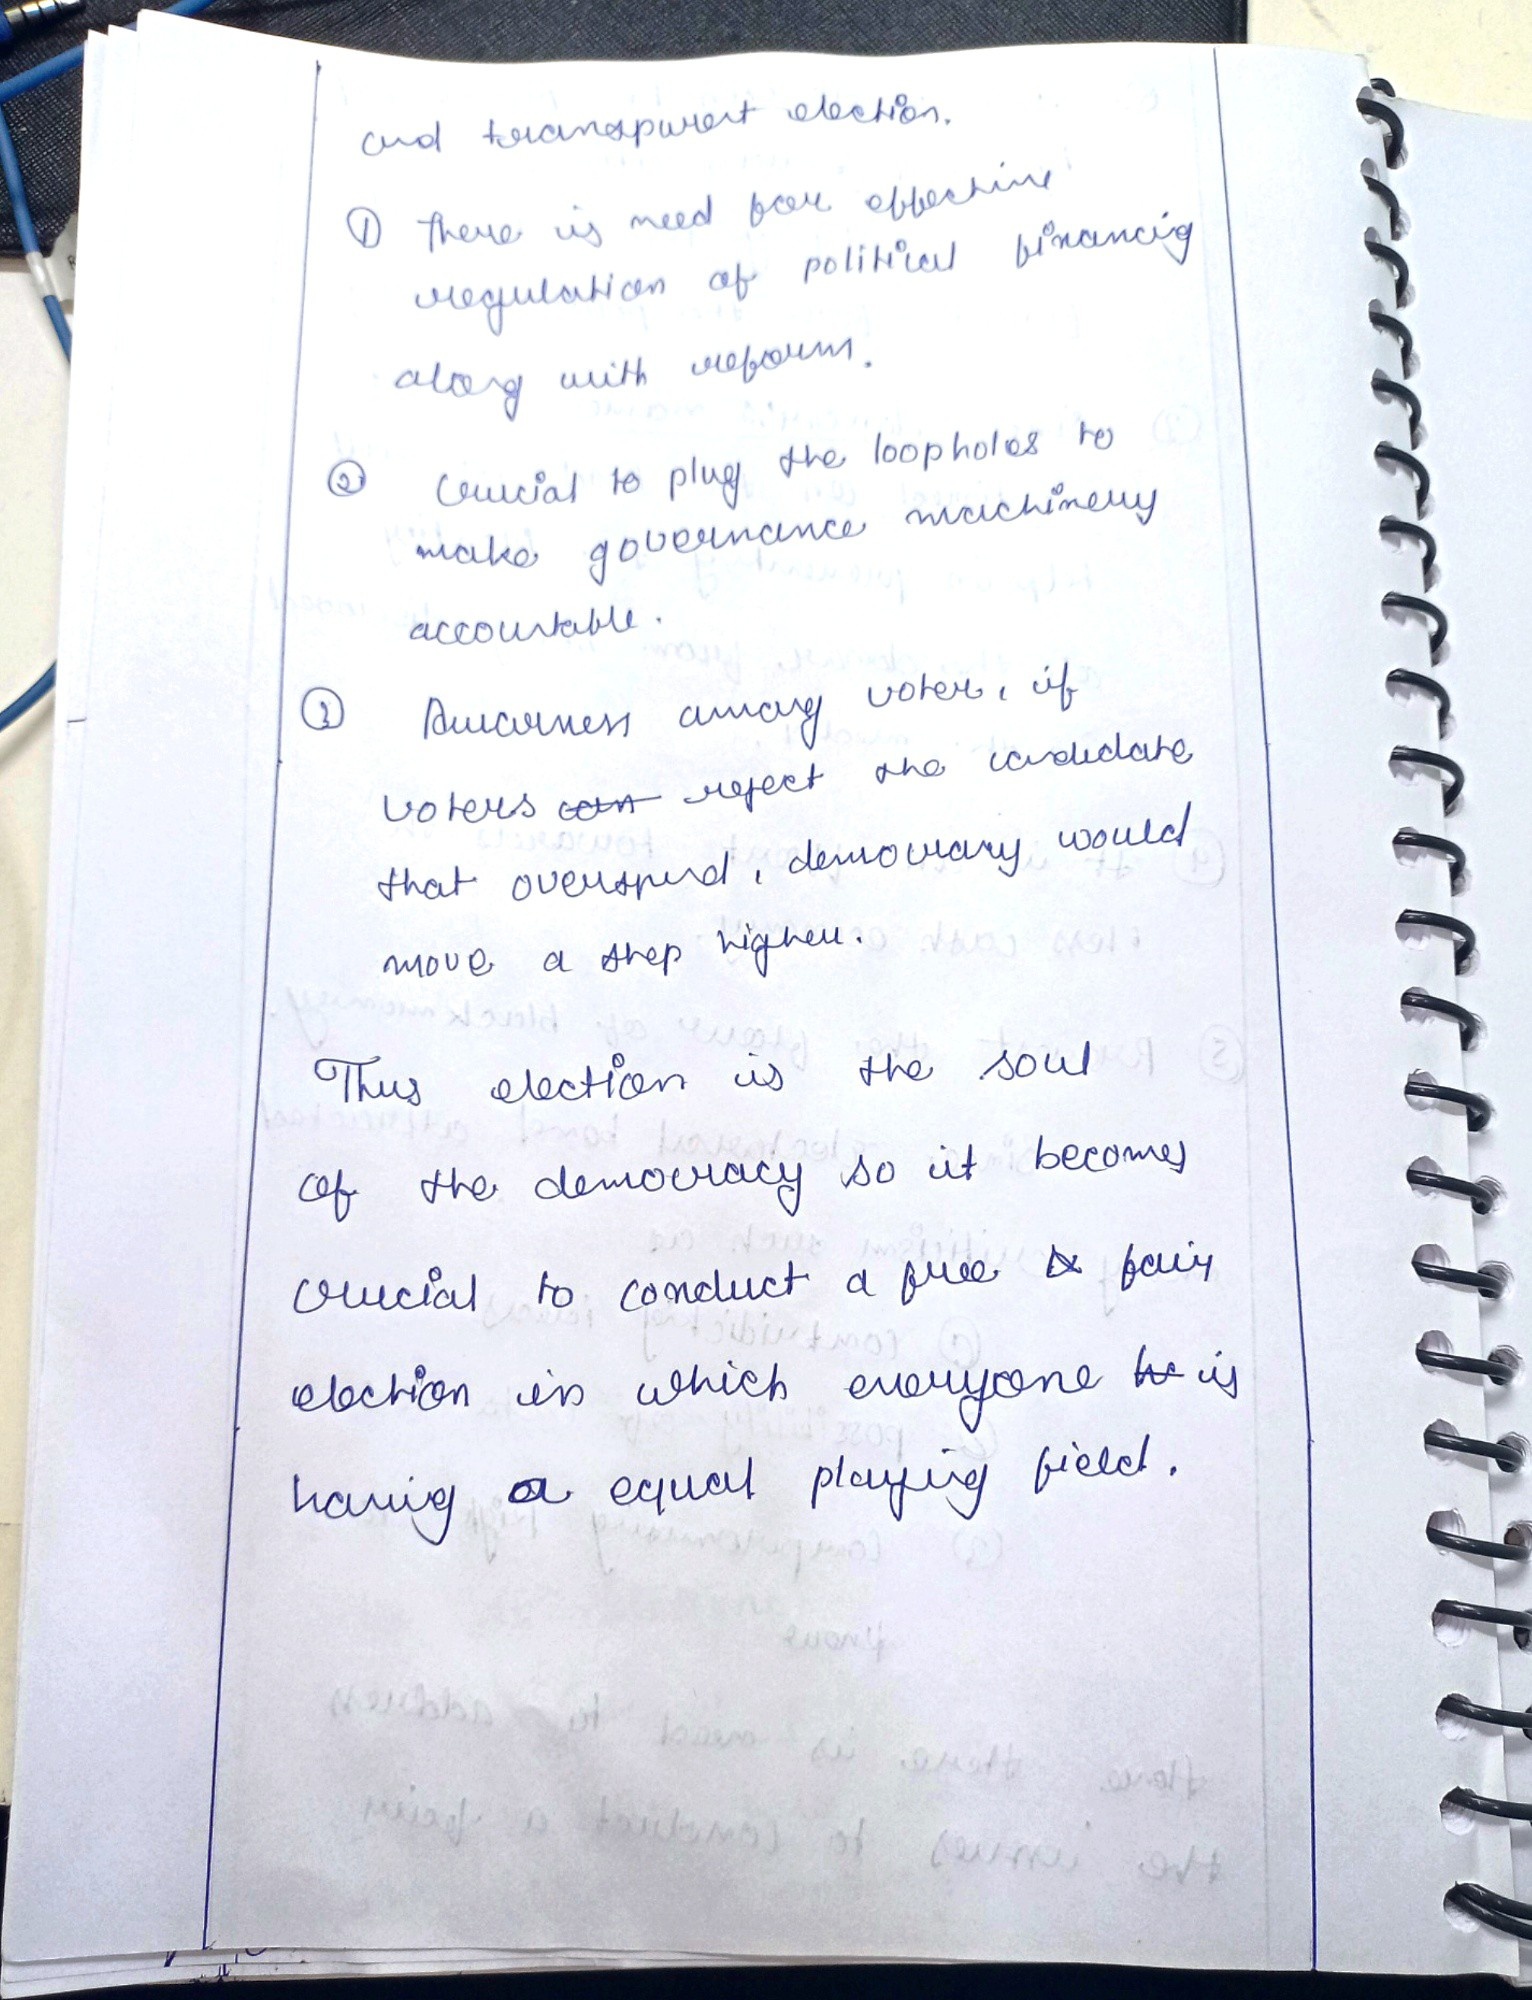 and transparent election.
① There is need for effective
regulation of political financing
along with reform.
② Crucial to plug the loopholes to
make governance machinery
accountable.
③ Awarness among voter, if
voters can reject the candidate
that overspend, democracy would
move a step higher.
Thus election is the soul
of the democracy so it becomes
crucial to conduct a free & fair
election in which everyone is
having a equal playing field.